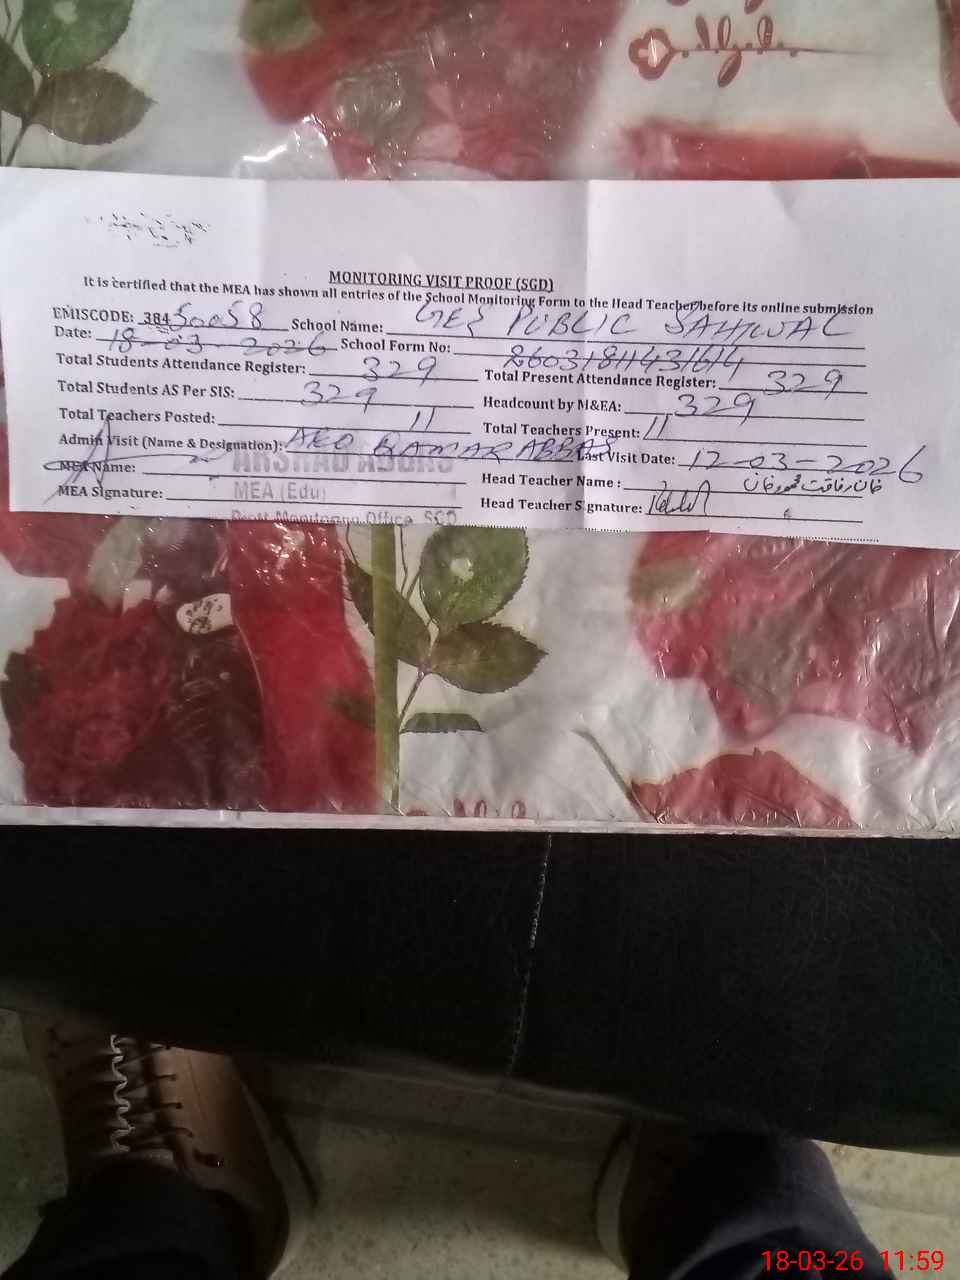 MONITORING VISIT PROOF (SGD)
It is certified that the MEA has shown all entries of the School Monitoring Form to the Head Teacher before its online submission
EMISCODE: 38450058 School Name: GES PUBLIC SAHIWAL
Date: 18-03-2026 School Form No:
Total Students Attendance Register: 329 Total Present Attendance Register: 329
Total Students AS Per SIS: 329 Headcount by M&EA: 329
Total Teachers Posted: 11 Total Teachers Present: 11
Admin Visit (Name & Designation): AEO QAMAR ABBAS Last Visit Date: 12-03-2026
MEA Name: ARSHAD ABBAS Head Teacher Name : خان
MEA Signature: MEA (Edu) Head Teacher Signature:
Distt Monitoring Office SGD
18-03-26 11:59